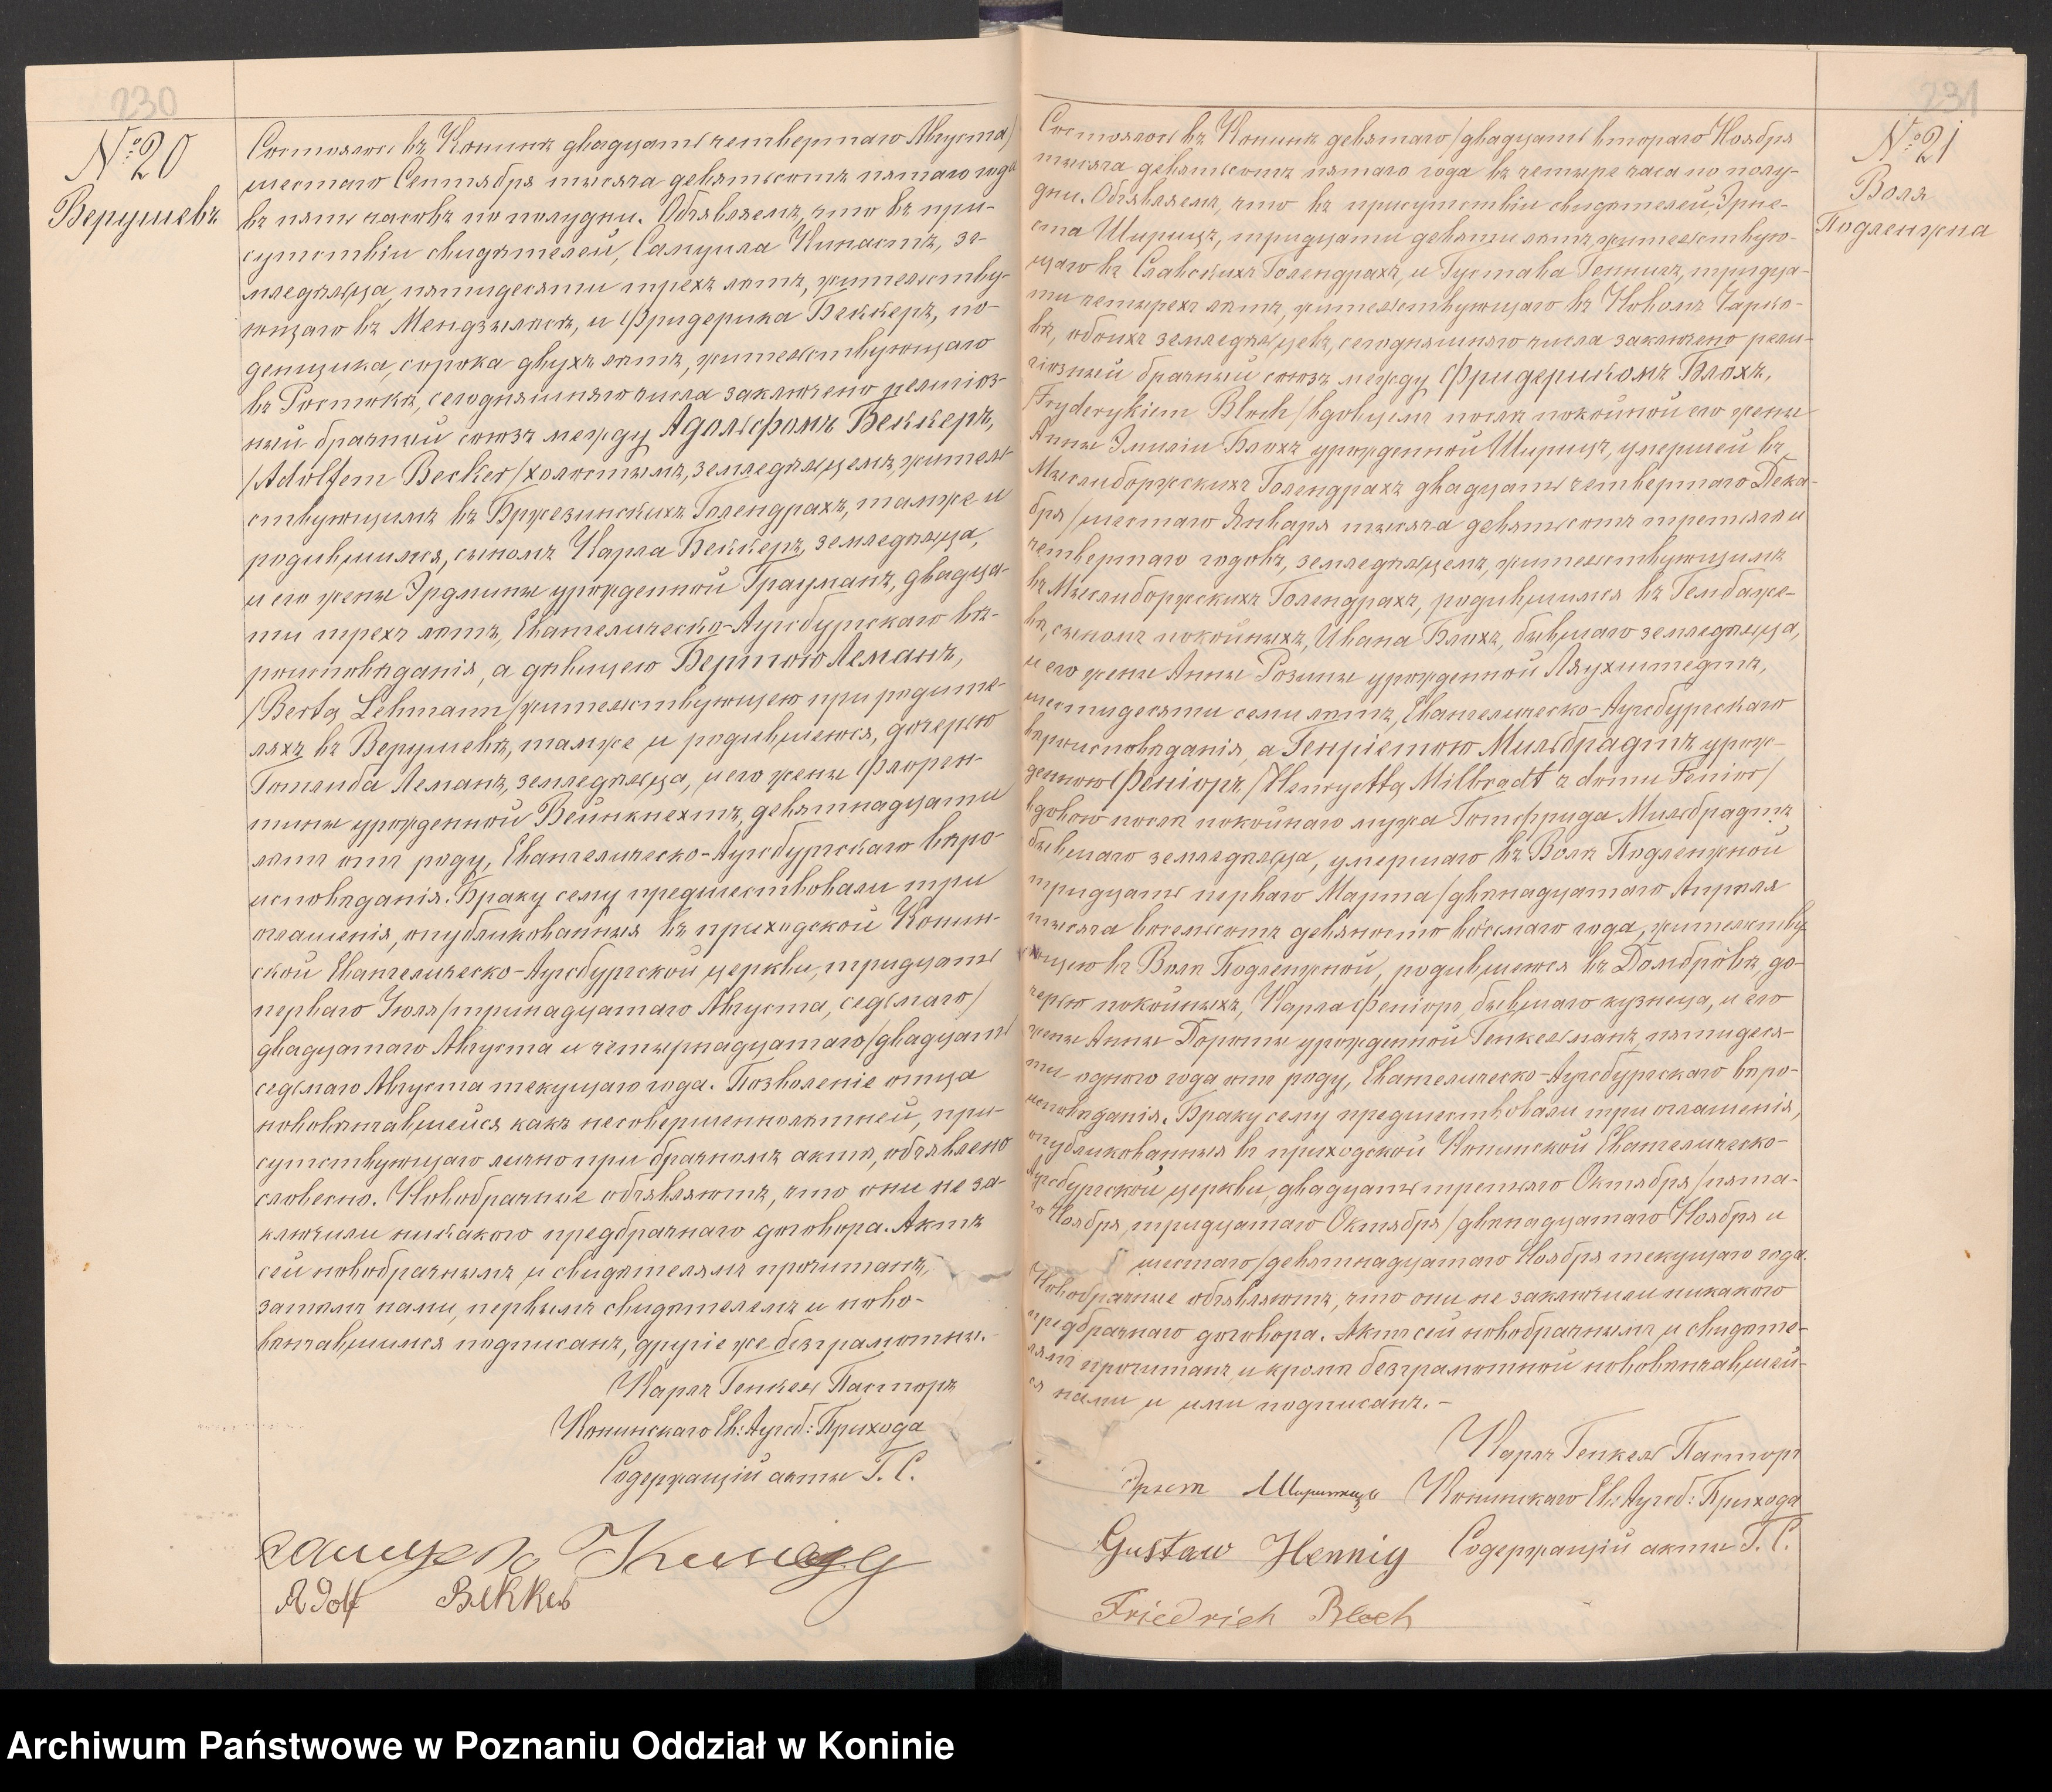 230
№ 20
Верушевъ
Состоялось въ Конинѣ двадцать четвертаго Августа/
шестаго Сентября тысяча девятьсотъ пятаго года
въ пять часовъ по полудни. Объявляемъ, что въ при-
сутствіи свидѣтелей, Самуила Кинастъ, зе-
мледѣльца, пятидесяти трехъ лѣтъ, жительству-
ющаго въ и Фридерика Беккеръ, по-
денщика, сорока двухъ лѣтъ, жительствующаго
въ Ростокѣ, сегодняшняго числа заключено религіоз-
ный брачный союзъ между Адольфомъ Беккеръ,
/Adolfem Becker/ холостымъ, земледѣльцемъ, житель-
ствующимъ въ Бржезинскихъ Голендрахъ, тамже и
родившимся, сыномъ Карла Беккеръ, земледѣльца,
и его жены Эрдмины урожденной Трауманъ, двадца-
ти трехъ лѣтъ, Евангелическо-Аугсбургскаго вѣ-
роисповѣданія, а дѣвицею Бертою Леманъ,
/Bertą Lehmann/ жительствующею при родите-
ляхъ въ Верушевѣ, тамже и родившеюся, дочерью
Готлиба Леманъ, земледѣльца, и его жены Флорен-
тины урожденной Вейнкнехтъ, девятнадцати
лѣтъ отъ роду, Евангелическо-Аугсбургскаго вѣро-
исповѣданія. Браку сему предшествовали три
оглашенія, опубликованныя въ приходской Конин-
ской Евангелическо-Аугсбургской церкви, тридцать
перваго Іюля/тринадцатаго Августа, седьмаго/
двадцатаго Августа и четырнадцатаго/двадцать
седьмаго Августа текущаго года. Позволеніе отца
нововѣнчавшейся какъ несовершеннолѣтней, при-
сутствующаго лично при брачномъ актѣ, объявлено
словесно. Новобрачные объявляютъ, что они не за-
ключили никакого предбрачнаго договора. Актъ
сей новобрачнымъ и свидѣтелямъ прочитанъ,
затѣмъ нами, первымъ свидѣтелемъ и ново-
вѣнчавшимся подписанъ, другіе же безграмотны.
Карлъ Генкель Пасторъ
Конинскаго Ев: Аугсб: Прихода
Содержащій акты Г. С.
Адолф Беккеръ
231
№ 21
Воля
Подленжна
Состоялось въ Конинѣ девятаго/двадцать втораго Ноября
тысяча девятьсотъ пятаго года въ четыре часа по полу-
дни. Объявляемъ, что въ присутствіи свидѣтелей, Эрне-
ста Ширицъ, тридцати девяти лѣтъ, жительствую-
щаго въ Славскихъ Голендрахъ, и Густава Геннигъ, тридца-
ти четырехъ лѣтъ, жительствующаго въ Новомъ Чарко-
вѣ, обоихъ земледѣльцевъ, сегодняшняго числа заключено рели-
гіозный брачный союзъ между Фридерикомъ Блохъ,
/Fryderykiem Bloch/ вдовцемъ послѣ покойной его жены
Анны Эмиліи Блохъ урожденной Ширицъ, умершей въ
Мыслиборжскихъ Голендрахъ двадцать четвертаго Дека-
бря/шестаго Января тысяча девятьсотъ третьяго и
четвертаго годовъ, земледѣльцемъ, жительствующимъ
въ Мыслиборжскихъ Голендрахъ, родившимся въ Гембаже-
вѣ, сыномъ покойныхъ, Ивана Блохъ, бывшаго земледѣльца,
и его жены Анны Розины урожденной Ляухштедтъ,
шестидесяти семи лѣтъ, Евангелическо-Аугсбургскаго
вѣроисповѣданія, а Генріетою Мильбрадтъ урож-
денною Феніоръ, /Henryettą Milbradt z domu Fenior/
вдовою послѣ покойнаго мужа Готфрида Мильбрадтъ
бывшаго земледѣльца, умершаго въ Волѣ Подленжной
тридцать перваго Марта/двѣнадцатаго Апрѣля
тысяча восемьсотъ девяносто восьмаго года, жительству-
ющею въ Волѣ Подленжной, родившеюся въ Домбровѣ, до-
черью покойныхъ, Карла Феніоръ, бывшаго кузнеца, и его
жены Анны Дороты урожденной Генкельманъ, пятидеся-
ти одного года отъ роду, Евангелическо-Аугсбургскаго вѣро-
исповѣданія. Браку сему предшествовали три оглашенія,
опубликованныя въ приходской Конинской Евангелическо-
Аугсбургской церкви, двадцать третьяго Октября/пята-
го Ноября, тридцатаго Октября/двѣнадцатаго Ноября и
шестаго/девятнадцатаго Ноября текущаго года.
Новобрачные объявляютъ, что они не заключили никакого
предбрачнаго договора. Актъ сей новобрачнымъ и свидѣте-
лямъ прочитанъ и кромѣ безграмотной нововѣнчавшей-
ся нами и ими подписанъ. –
Карлъ Генкель Пасторъ
Конинскаго Ев: Аугсб: Прихода
Содержащій акты Г. С.
Gustaw Hennig
Friedrich Bloch
Archiwum Państwowe w Poznaniu Oddział w Koninie